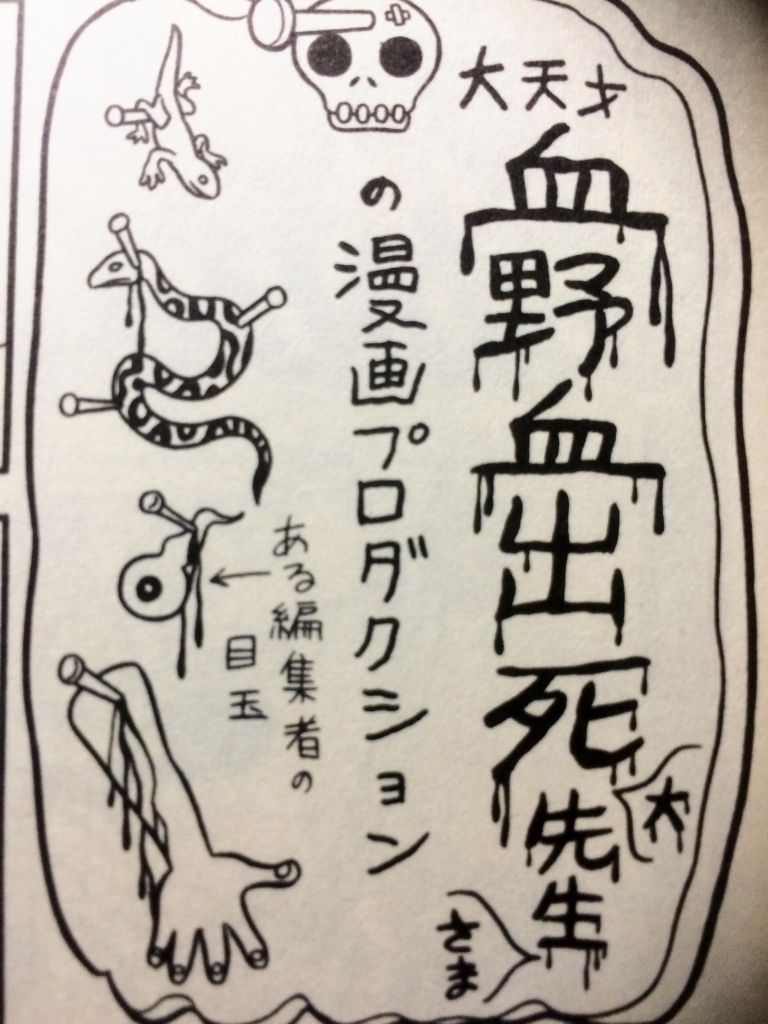 大天才
血野血出死大先生さま
の漫画プロダクション
ある編集者の
目玉